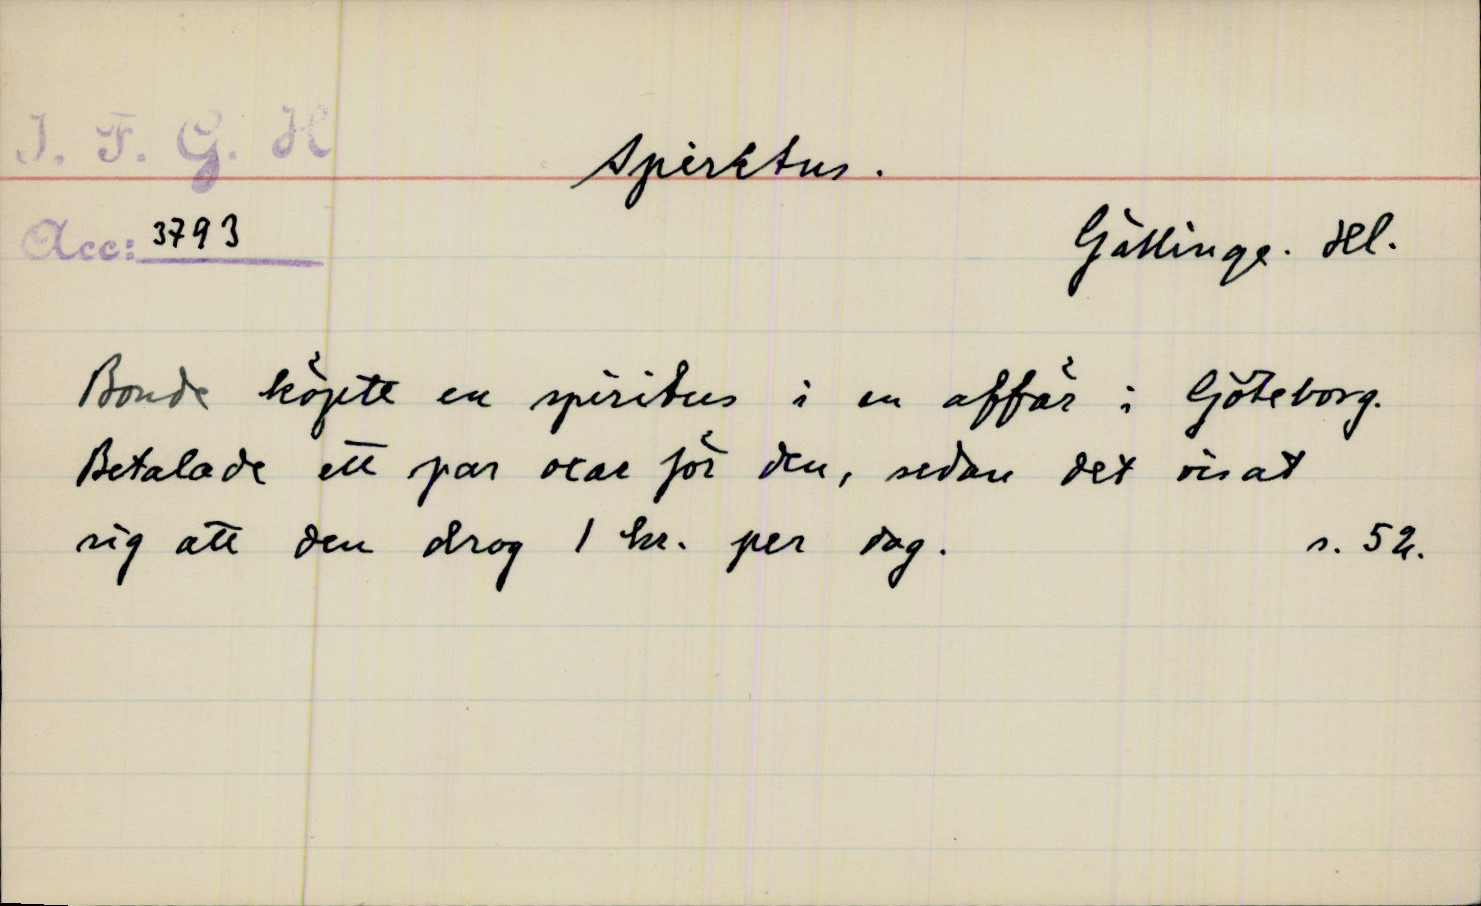 I. F. G. H
Spirktus.
Acc: 3793
Gällinge. Hl.
Bonde köpte en spiritus i en affär i Göteborg.
Betalade ett par oxar för den, sedan det visat
sig att den drog 1 kr. per dag. s. 52.